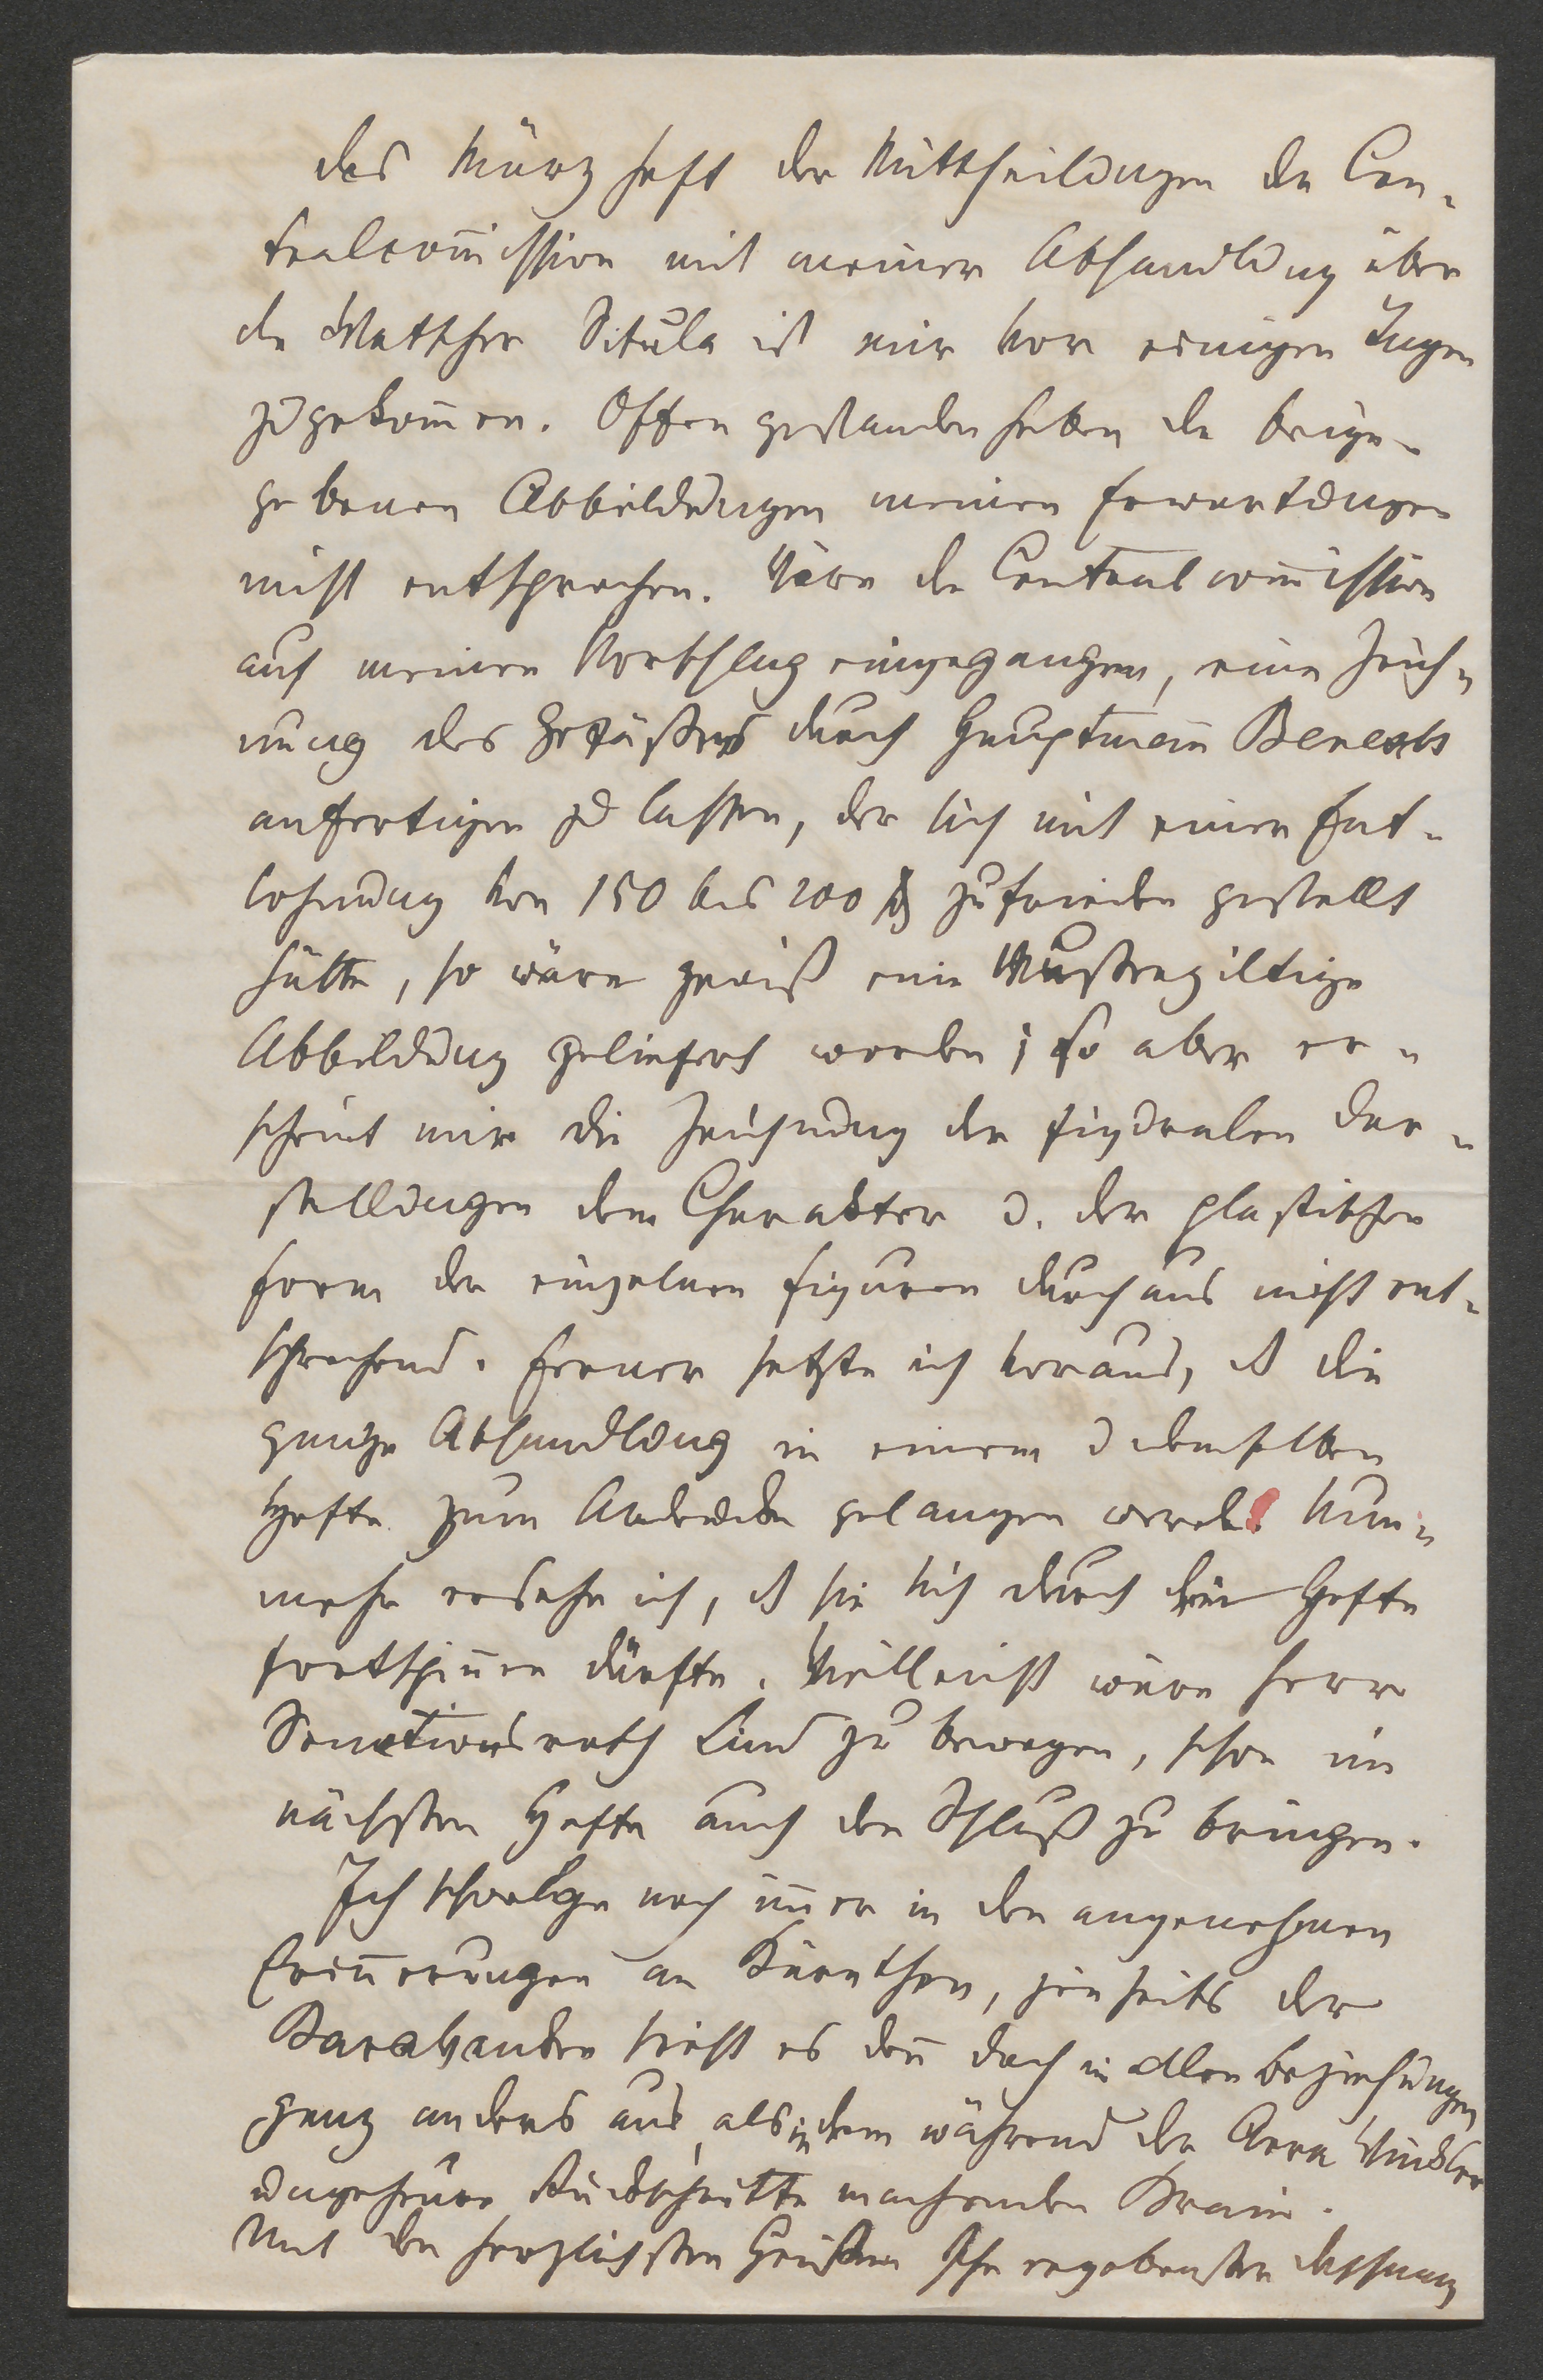 Das Märzheft der Mittheilungen der Cen-
tralcom̅ission mit meiner Abhandlung über
die Watscher Situla ist mir vor einigen Tagen
zugekom̅en. Offen gestanden haben die beige-
gebenen Abbildungen meinen Erwartungen
nicht entsprochen. Wäre die Centralcom̅ission
auf meinen Vorschlag eingegangen, eine Zeich-
nung des Gefässes durch Hauptman̅ Benesch
anfertigen zu lassen, der sich mit einer Ent-
lohnung von 150 bis 200 fl zufrieden gestellt
hätte, so wäre gewiß eine Mustergiltige
Abbildung geliefert worden; so aber er-
scheint mir die Zeichnung der figuralen Dar-
stellungen dem Charakter u. der plastischen
Form der einzelnen Figuren durchaus nicht ent-
sprechend. Ferner setzte ich voraus, dß die
ganze Abhandlung in einem u demselben
Hefte zum Abdrucke gelangen werde. Nun-
mehr ersehe ich, dß sie sich durch drei Hefte
fortspin̅en dürfte. Vielleicht wäre Herr
Sectionsrath Lind zu bewegen, schon im
nächsten Hefte auch den Schluß zu bringen.
Ich schwelge noch im̅er in den angenehmen
Erin̅erungen an Kärnthen, jenseits der
Karawanken sieht es den̅ doch in allen Beziehungen
ganz anders aus, als in dem während der Aera Winkler
ungeheure Rückschritte machenden Krain.
Mit den herzlichsten Grüßen Ihr ergebenster Deschmann